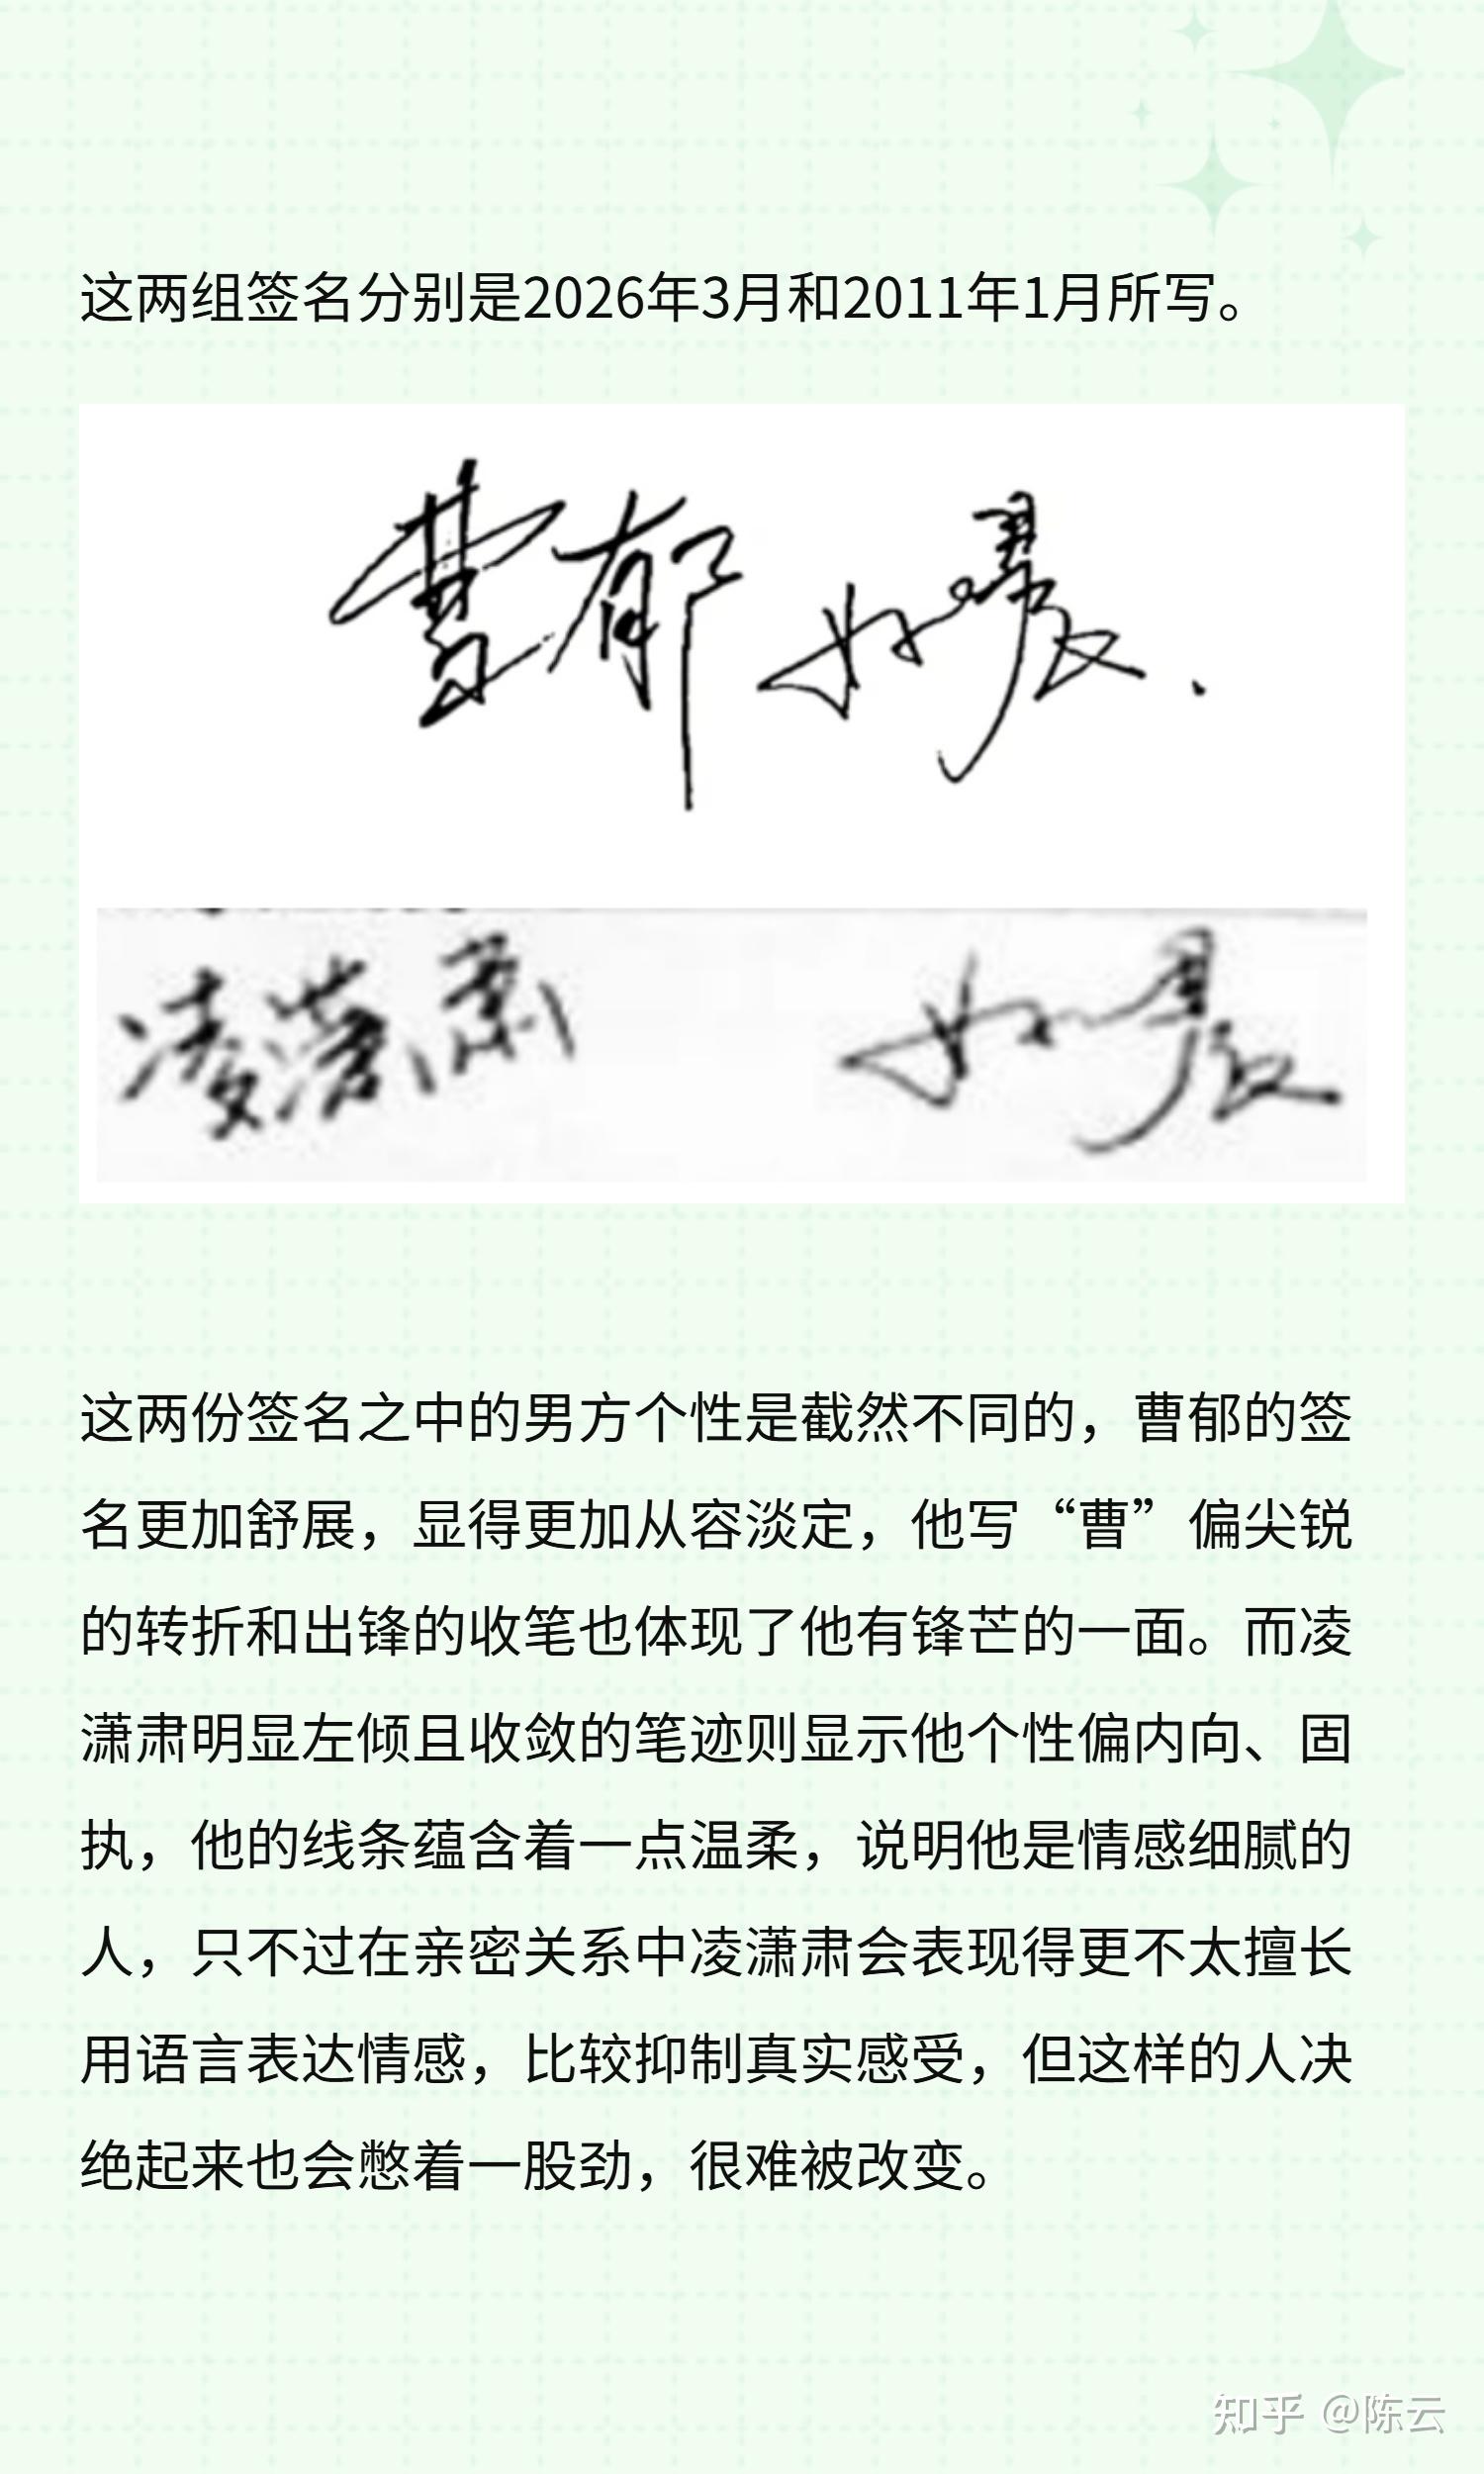 这两组签名分别是2026年3月和2011年1月所写。
曹郁 姚晨.
凌潇肃 姚晨
这两份签名之中的男方个性是截然不同的，曹郁的签
名更加舒展，显得更加从容淡定，他写“曹”偏尖锐
的转折和出锋的收笔也体现了他有锋芒的一面。而凌
潇肃明显左倾且收敛的笔迹则显示他个性偏内向、固
执，他的线条蕴含着一点温柔，说明他是情感细腻的
人，只不过在亲密关系中凌潇肃会表现得更不太擅长
用语言表达情感，比较抑制真实感受，但这样的人决
绝起来也会憋着一股劲，很难被改变。
知乎 @陈云